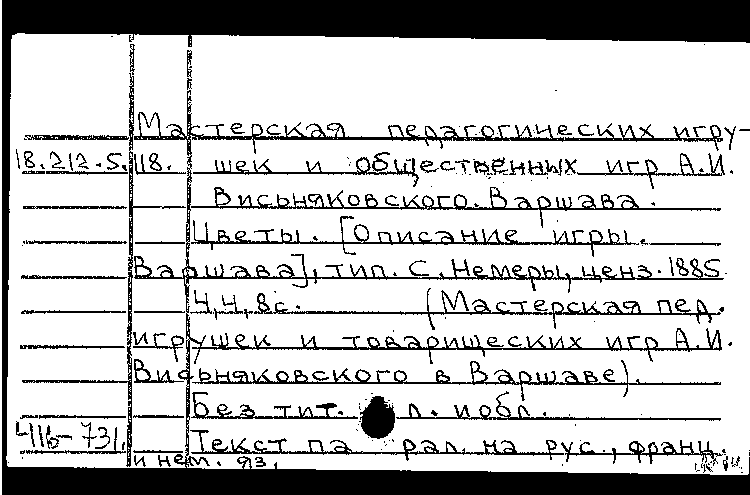 Мастерская педагогических игру-
18.212.5.118. шек и общественных игр А.И.
Висьняковского. Варшава.
Цветы. [Описание игры.
Варшава], тип. С. Немеры, ценз. 1885
4,4,8с. (Мастерская пед.
игрушек и товарищеских игр А.И.
Висьняковского в Варшаве).
Без тит. л. и обл.
Ч116-731. Текст па рал. на рус., франц.
и нем. яз.